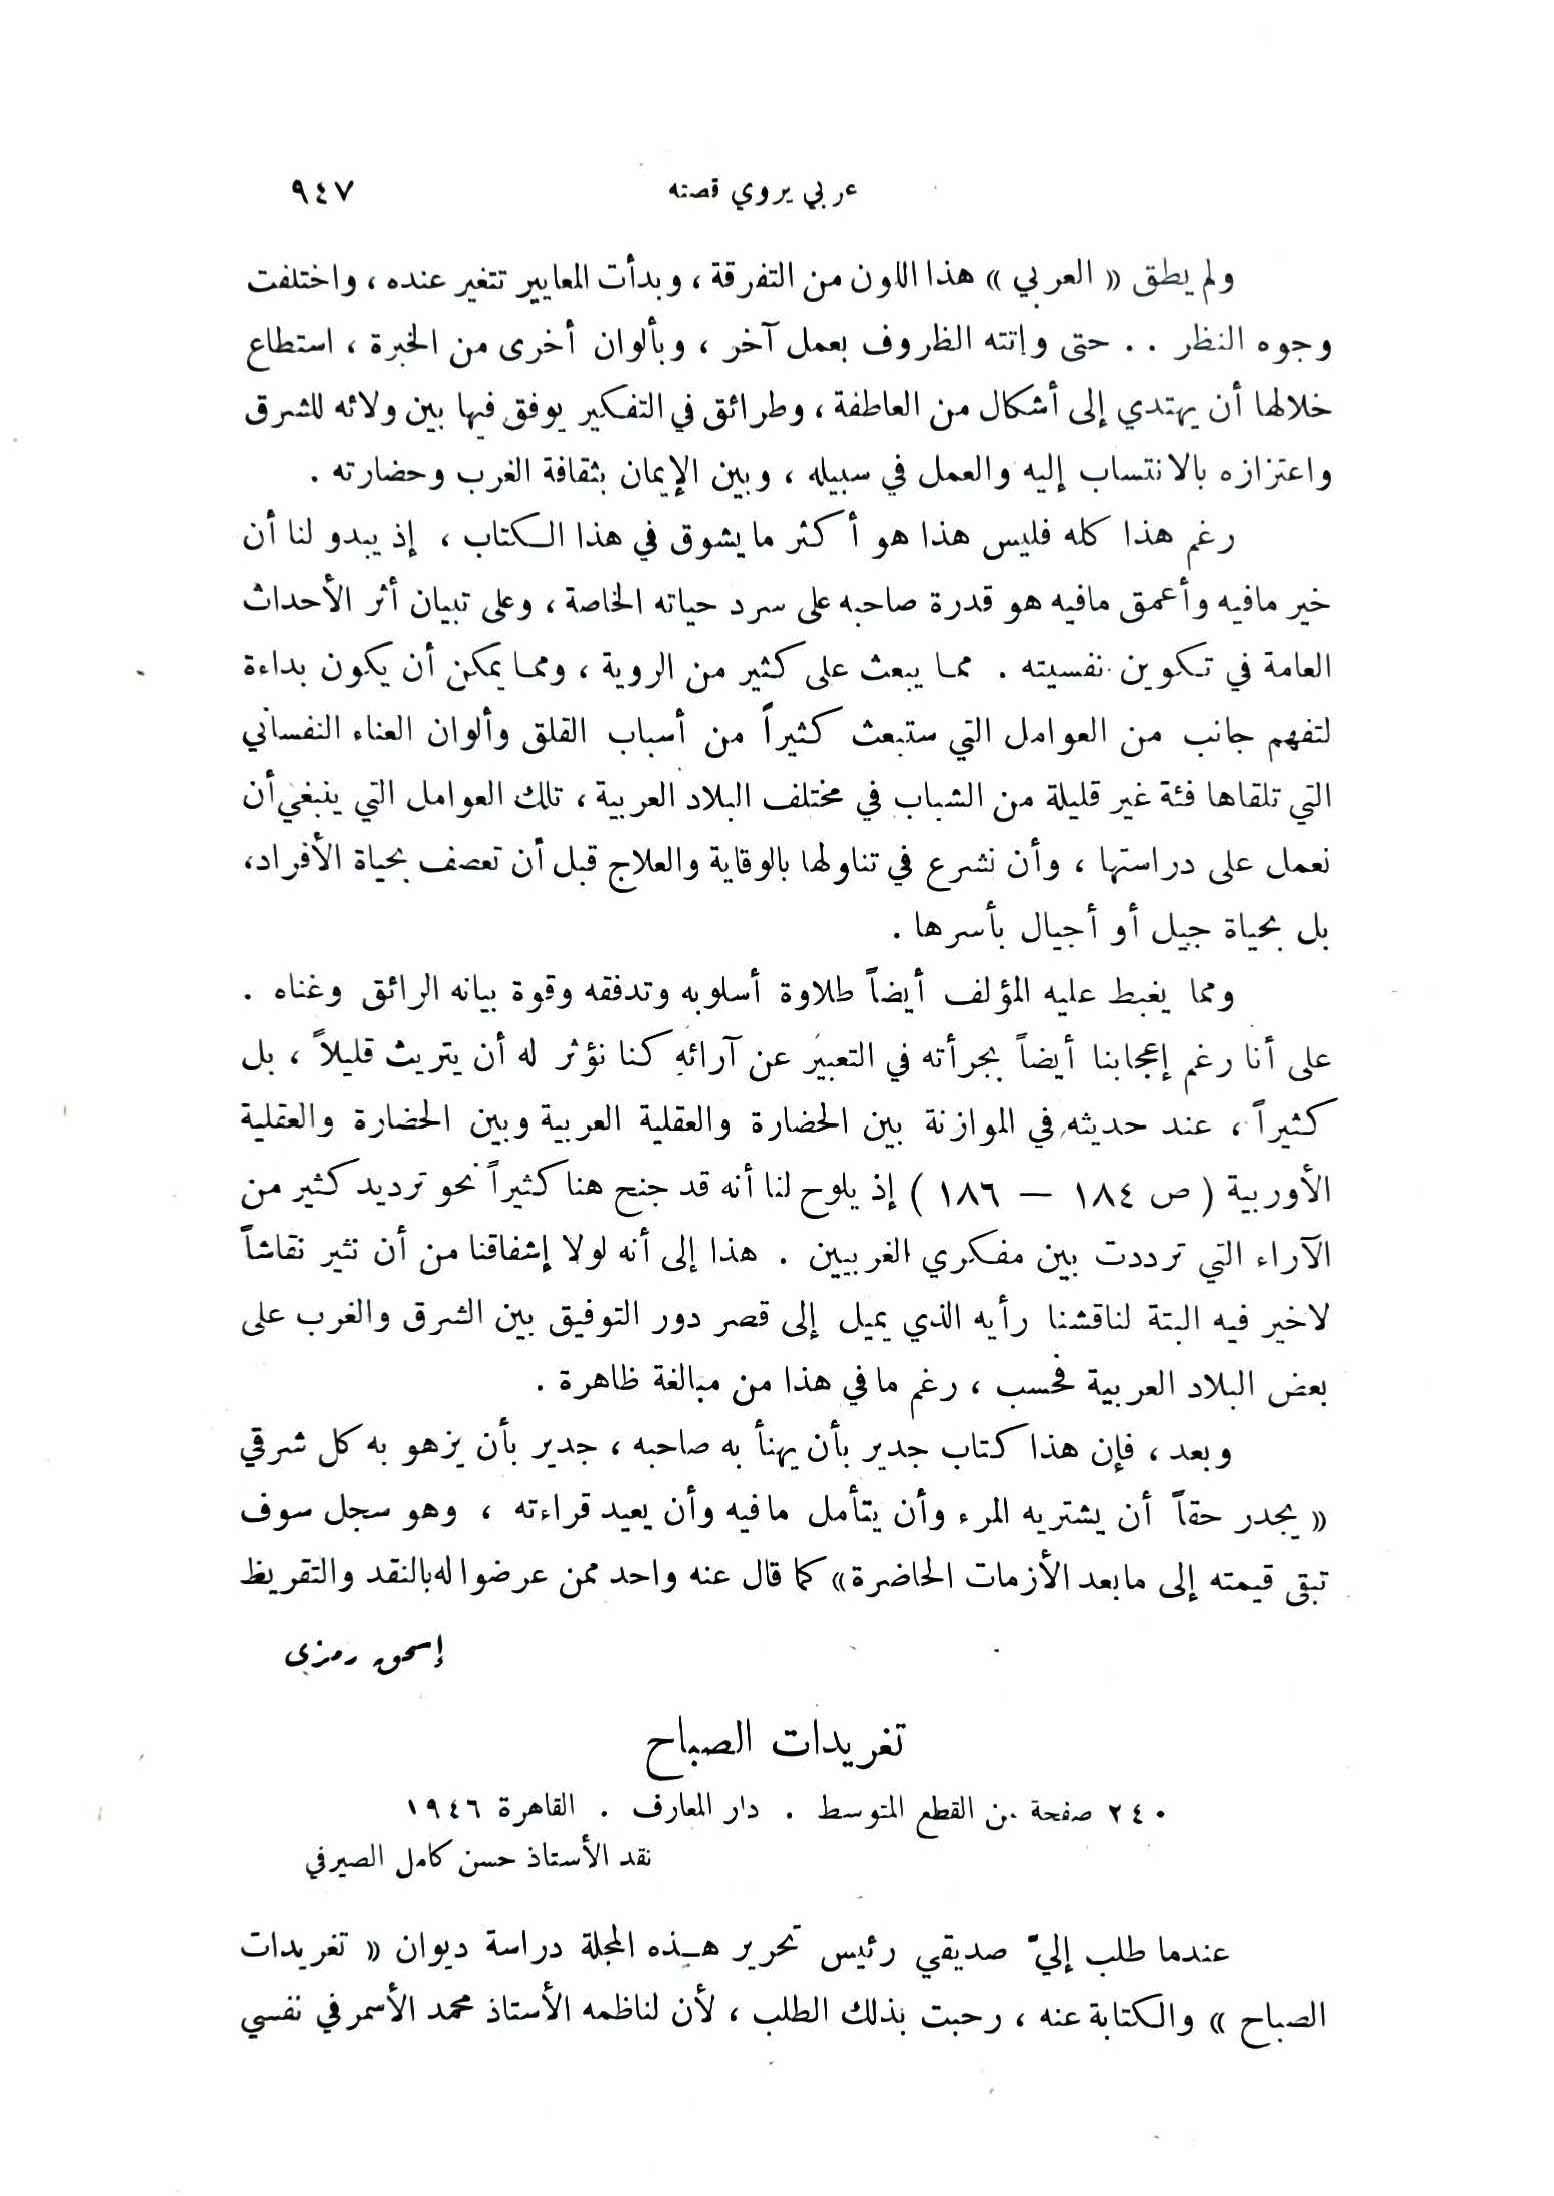 عربي يروي قصته ٩٤٧
ولم يطق « العربي » هذا اللون من التفرقة ، وبدأت المعايير تتغير عنده ، واختلفت
وجوه النظر . . حتى واتته الظروف بعمل آخر ، وبألوان أخرى من الخبرة ، استطاع
خلالها أن يهتدي إلى أشكال من العاطفة ، وطرائق في التفكير يوفق فيها بين ولائه للشرق
واعتزازه بالانتساب إليه والعمل في سبيله ، وبين الإيمان بثقافة الغرب وحضارته .
رغم هذا كله فليس هذا هو أكثر ما يشوق في هذا الكتاب ، إذ يبدو لنا أن
خير مافيه وأعمق مافيه هو قدرة صاحبه على سرد حياته الخاصة ، وعلى تبيان أثر الأحداث
العامة في تكوين نفسيته . مما يبعث على كثير من الروية ، ومما يمكن أن يكون بداءة
لتفهم جانب من العوامل التي ستبعث كثيراً من أسباب القلق وألوان العناء النفساني
التي تلقاها فئة غير قليلة من الشباب في مختلف البلاد العربية ، تلك العوامل التي ينبغي أن
نعمل على دراستها ، وأن نشرع في تناولها بالوقاية والعلاج قبل أن تعصف بحياة الأفراد،
بل بحياة جيل أو أجيال بأسرها .
ومما يغبط عليه المؤلف أيضاً طلاوة أسلوبه وتدفقه وقوة بيانه الرائق وغناه .
على أنا رغم إعجابنا أيضاً بجرأته في التعبير عن آرائه كنا نؤثر له أن يتريث قليلاً ، بل
كثيراً ، عند حديثه في الموازنة بين الحضارة والعقلية العربية وبين الحضارة والعقلية
الأوربية ( ص ١٨٤ — ١٨٦ ) إذ يلوح لنا أنه قد جنح هنا كثيراً نحو ترديد كثير من
الآراء التي ترددت بين مفكري الغربيين . هذا إلى أنه لولا إشفاقنا من أن نثير نقاشاً
لاخير فيه البتة لناقشنا رأيه الذي يميل إلى قصر دور التوفيق بين الشرق والغرب على
بعض البلاد العربية فحسب ، رغم ما في هذا من مبالغة ظاهرة .
وبعد ، فإن هذا كتاب جدير بأن يهنأ به صاحبه ، جدير بأن يزهو به كل شرقي
« يجدر حقاً أن يشتريه المرء وأن يتأمل مافيه وأن يعيد قراءته ، وهو سجل سوف
تبقى قيمته إلى مابعد الأزمات الحاضرة » كما قال عنه واحد ممن عرضوا له بالنقد والتقريظ
إسحق رمزى
تغريدات الصباح
٢٤٠ صفحة من القطع المتوسط . دار المعارف . القاهرة ١٩٤٦
نقد الأستاذ حسن كامل الصيرفي
عندما طلب إليّ صديقي رئيس تحرير هذه المجلة دراسة ديوان « تغريدات
الصباح » والكتابة عنه ، رحبت بذلك الطلب ، لأن لناظمه الأستاذ محمد الأسمر في نفسي